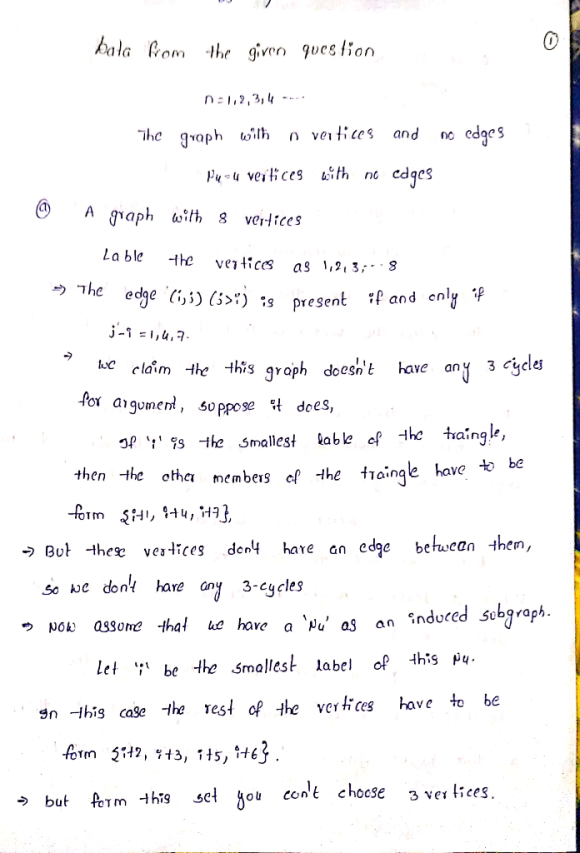 ①
Data from the given question
n=1,2,3,4 ----
The graph with n vertices and no edges
N4=4 vertices with no edges
ⓐ A graph with 8 vertices
Lable the vertices as 1,2,3,--8
⇒ The edge (i,j) (j>i) is present if and only if
j-i =1,4,7.
→ we claim the this graph doesn't have any 3 cycles
for argument, suppose it does,
If 'i' is the smallest lable of the traingle,
then the other members of the traingle have to be
form {i+1, i+4, i+7},
→ But these vertices don't have an edge between them,
so we don't have any 3-cycles
→ Now assume that we have a 'N4' as an induced subgraph.
Let 'i' be the smallest label of this N4.
In this case the rest of the vertices have to be
form {i+2, i+3, i+5, i+6}.
→ but form this set you con't choose 3 vertices.